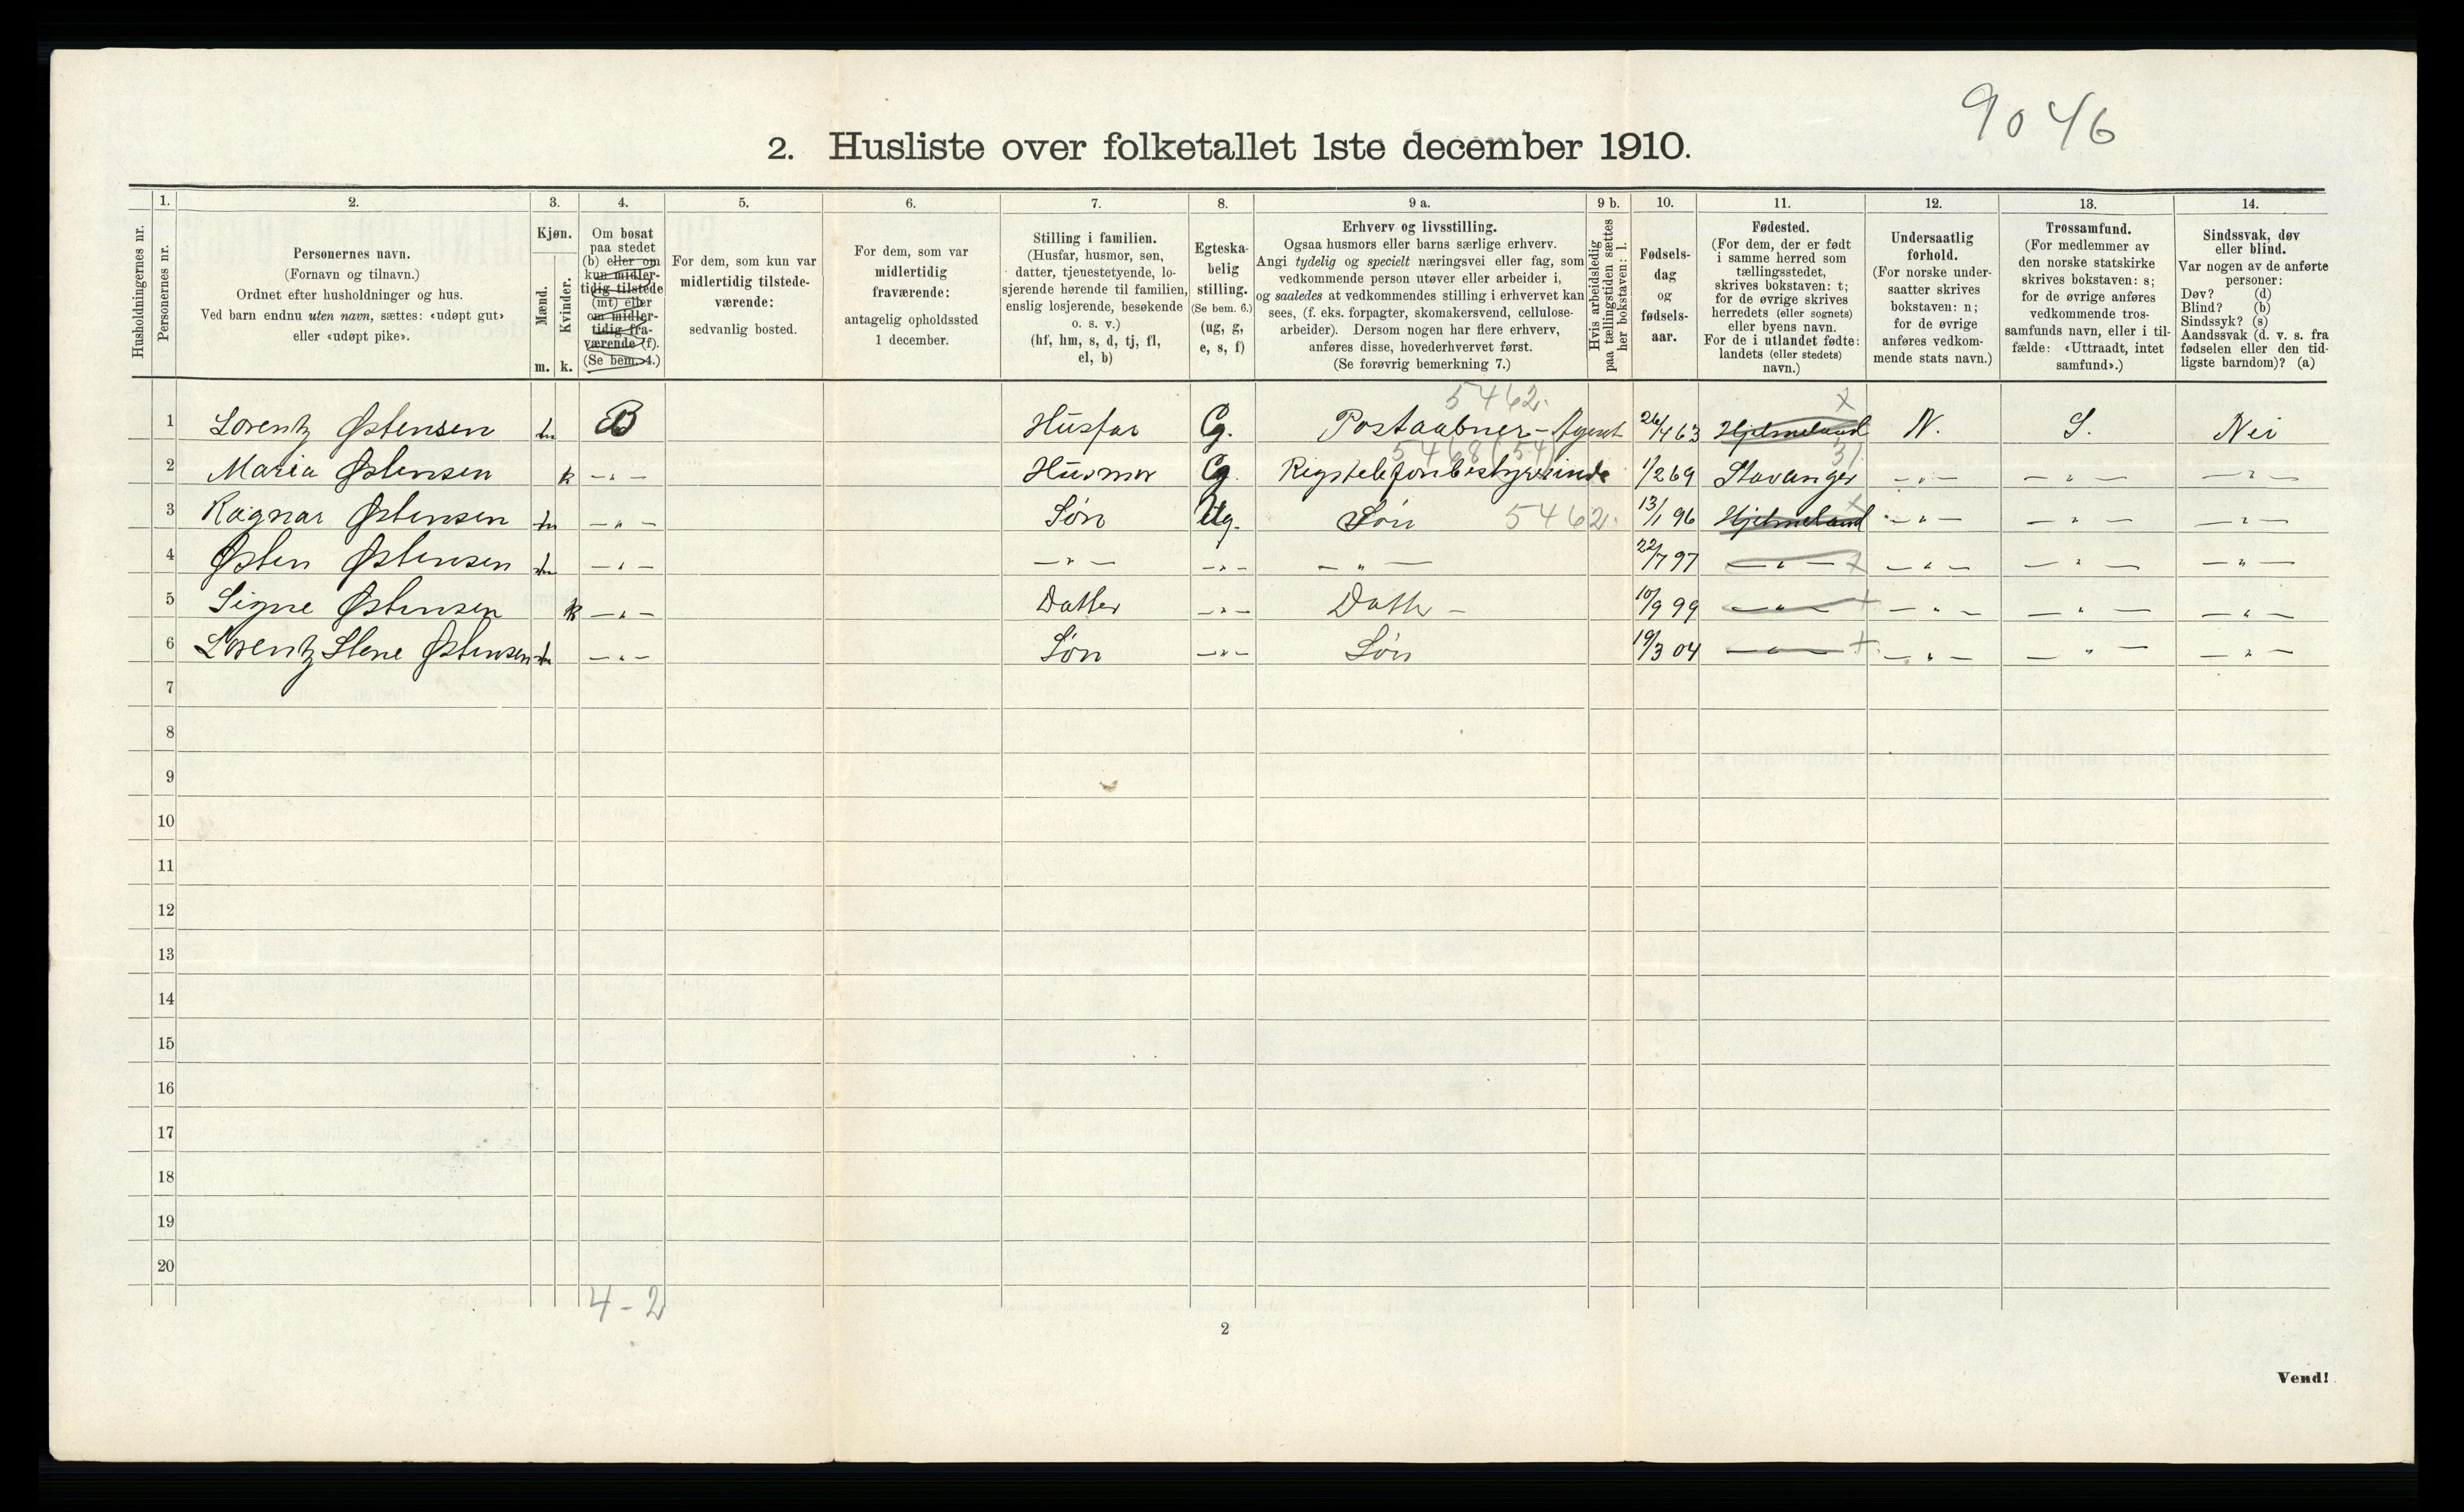 9046
2. Husliste over folketallet 1ste december 1910.
Husholdningernes nr.
1. Personernes nr.
2. Personernes navn.
(Fornavn og tilnavn.)
Ordnet efter husholdninger og hus.
Ved barn endnu uten navn, sættes: «udøpt gut»
eller «udøpt pike».
3. Kjøn.
Mænd. m.
Kvinder. k.
4. Om bosat
paa stedet
(b) eller om
kun midler-
tidig tilstede
(mt) eller
om midler-
tidig fra-
værende (f).
(Se bem. 4.)
5. For dem, som kun var
midlertidig tilstede-
værende:
sedvanlig bosted.
6. For dem, som var
midlertidig
fraværende:
antagelig opholdssted
1 december.
7. Stilling i familien.
(Husfar, husmor, søn,
datter, tjenestetyende, lo-
sjerende hørende til familien,
enslig losjerende, besøkende
o. s. v.)
(hf, hm, s, d, tj, fl,
el, b)
8. Egteska-
belig
stilling.
(Se bem. 6.)
(ug, g,
e, s, f)
9 a. Erhverv og livsstilling.
Ogsaa husmors eller barns særlige erhverv.
Angi tydelig og specielt næringsvei eller fag, som
vedkommende person utøver eller arbeider i,
og saaledes at vedkommendes stilling i erhvervet kan
sees, (f. eks. forpagter, skomakersvend, cellulose-
arbeider). Dersom nogen har flere erhverv,
anføres disse, hovederhvervet først.
(Se forøvrig bemerkning 7.)
9 b. Hvis arbeidsledig
paa tællingstiden sættes
her bokstaven: l.
10. Fødsels-
dag
og
fødsels-
aar.
11. Fødested.
(For dem, der er født
i samme herred som
tællingsstedet,
skrives bokstaven: t;
for de øvrige skrives
herredets (eller sognets)
eller byens navn.
For de i utlandet fødte:
landets (eller stedets)
navn.)
12. Undersaatlig
forhold.
(For norske under-
saatter skrives
bokstaven: n;
for de øvrige
anføres vedkom-
mende stats navn.)
13. Trossamfund.
(For medlemmer av
den norske statskirke
skrives bokstaven: s;
for de øvrige anføres
vedkommende tros-
samfunds navn, eller i til-
fælde: «Uttraadt, intet
samfund».)
14. Sindssvak, døv
eller blind.
Var nogen av de anførte
personer:
Døv? (d)
Blind? (b)
Sindssyk? (s)
Aandssvak (d. v. s. fra
fødselen eller den tid-
ligste barndom)? (a)
5462. x
1 Lorentz Østensen m B Husfar G. Postaabner - Agent 26/4 63 Hjelmeland N. S. Nei
5468 (54) 31
2 Maria Østensen k -"- Husmor G. Rigstelefonbestyrerinde 1/2 69 Stavanger -"- -"- -"-
3 Ragnar Østensen m -"- Søn Ug. Søn 5462. 13/1 96 Hjelmeland x -"- -"- -"-
4 Østen Østensen m -"- -"- -"- -"- 22/7 97 -"- x -"- -"- -"-
5 Signe Østensen k -"- Datter -"- Datter - 10/9 99 -"- + -"- -"- -"-
6 Lorentz Stene Østensen m -"- Søn -"- Søn 19/3 04 -"- + -"- -"- -"-
7
8
9
10
11
12
13
14
15
16
17
18
19
20
4-2
2
Vend!